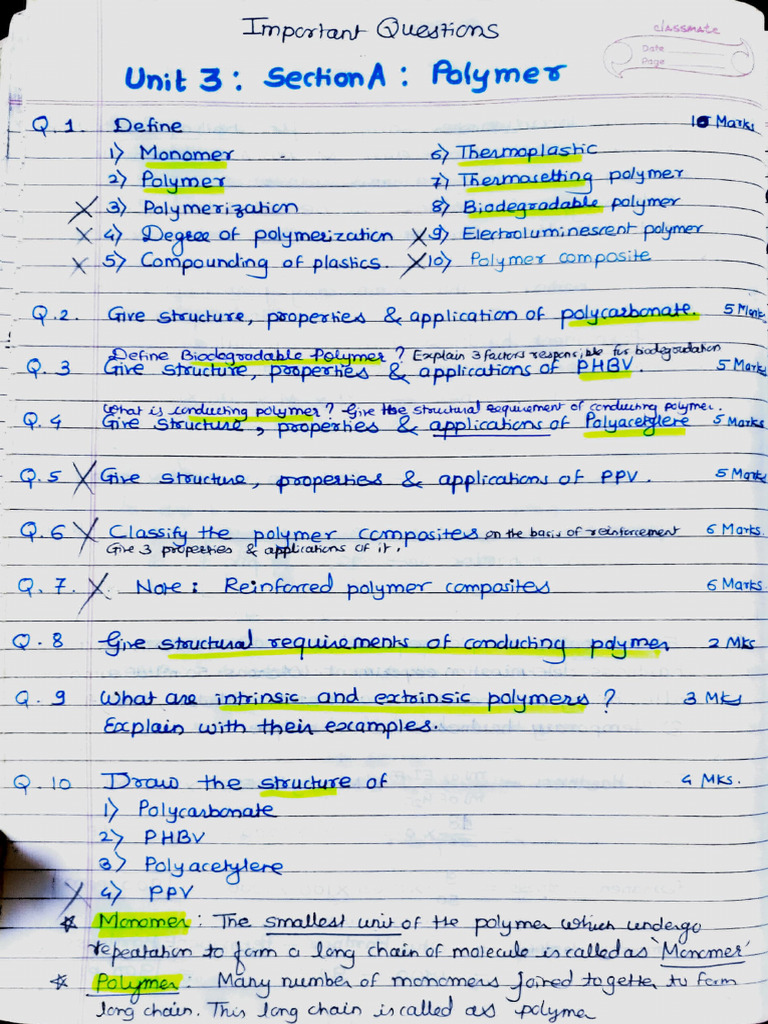 Important Questions
classmate
Date
Page
Unit 3 : Section A : Polymer
Q. 1. Define 10 Marks
1) Monomer 6) Thermoplastic
2) Polymer 7) Thermosetting polymer
X 3) Polymerization 8) Biodegradable polymer
X 4) Degree of polymerization X 9) Electroluminescent polymer
X 5) Compounding of plastics. X 10) Polymer composite
Q.2. Give structure, properties & application of polycarbonate. 5 Mark
Define Biodegradable Polymer ? Explain 3 factors responsible for biodegradation
Q. 3 Give structure, properties & applications of PHBV. 5 Mark
What is conducting polymer ? Give the structural requirement of conducting polymer.
Q. 4 Give structure, properties & applications of Polyacetylene 5 Marks
Q.5 X Give structure, properties & applications of PPV. 5 Mark
Q.6 X Classify the polymer composites on the basis of reinforcement 6 Marks.
Give 3 properties & applications of it.
Q. 7. X Note : Reinforced polymer composites 6 Marks
Q. 8 Give structural requirements of conducting polymer 2 Mks
Q. 9 What are intrinsic and extrinsic polymers ? 3 Mks
Explain with their examples.
Q. 10 Draw the structure of 4 Mks.
1) Polycarbonate
2) PHBV
3) Polyacetylene
X 4) PPV
* Monomer : The smallest unit of the polymer which undergo
repeatation to form a long chain of molecule is called as 'Monomer'
* Polymer : Many number of monomers joined together to form
long chain. This long chain is called as polymer